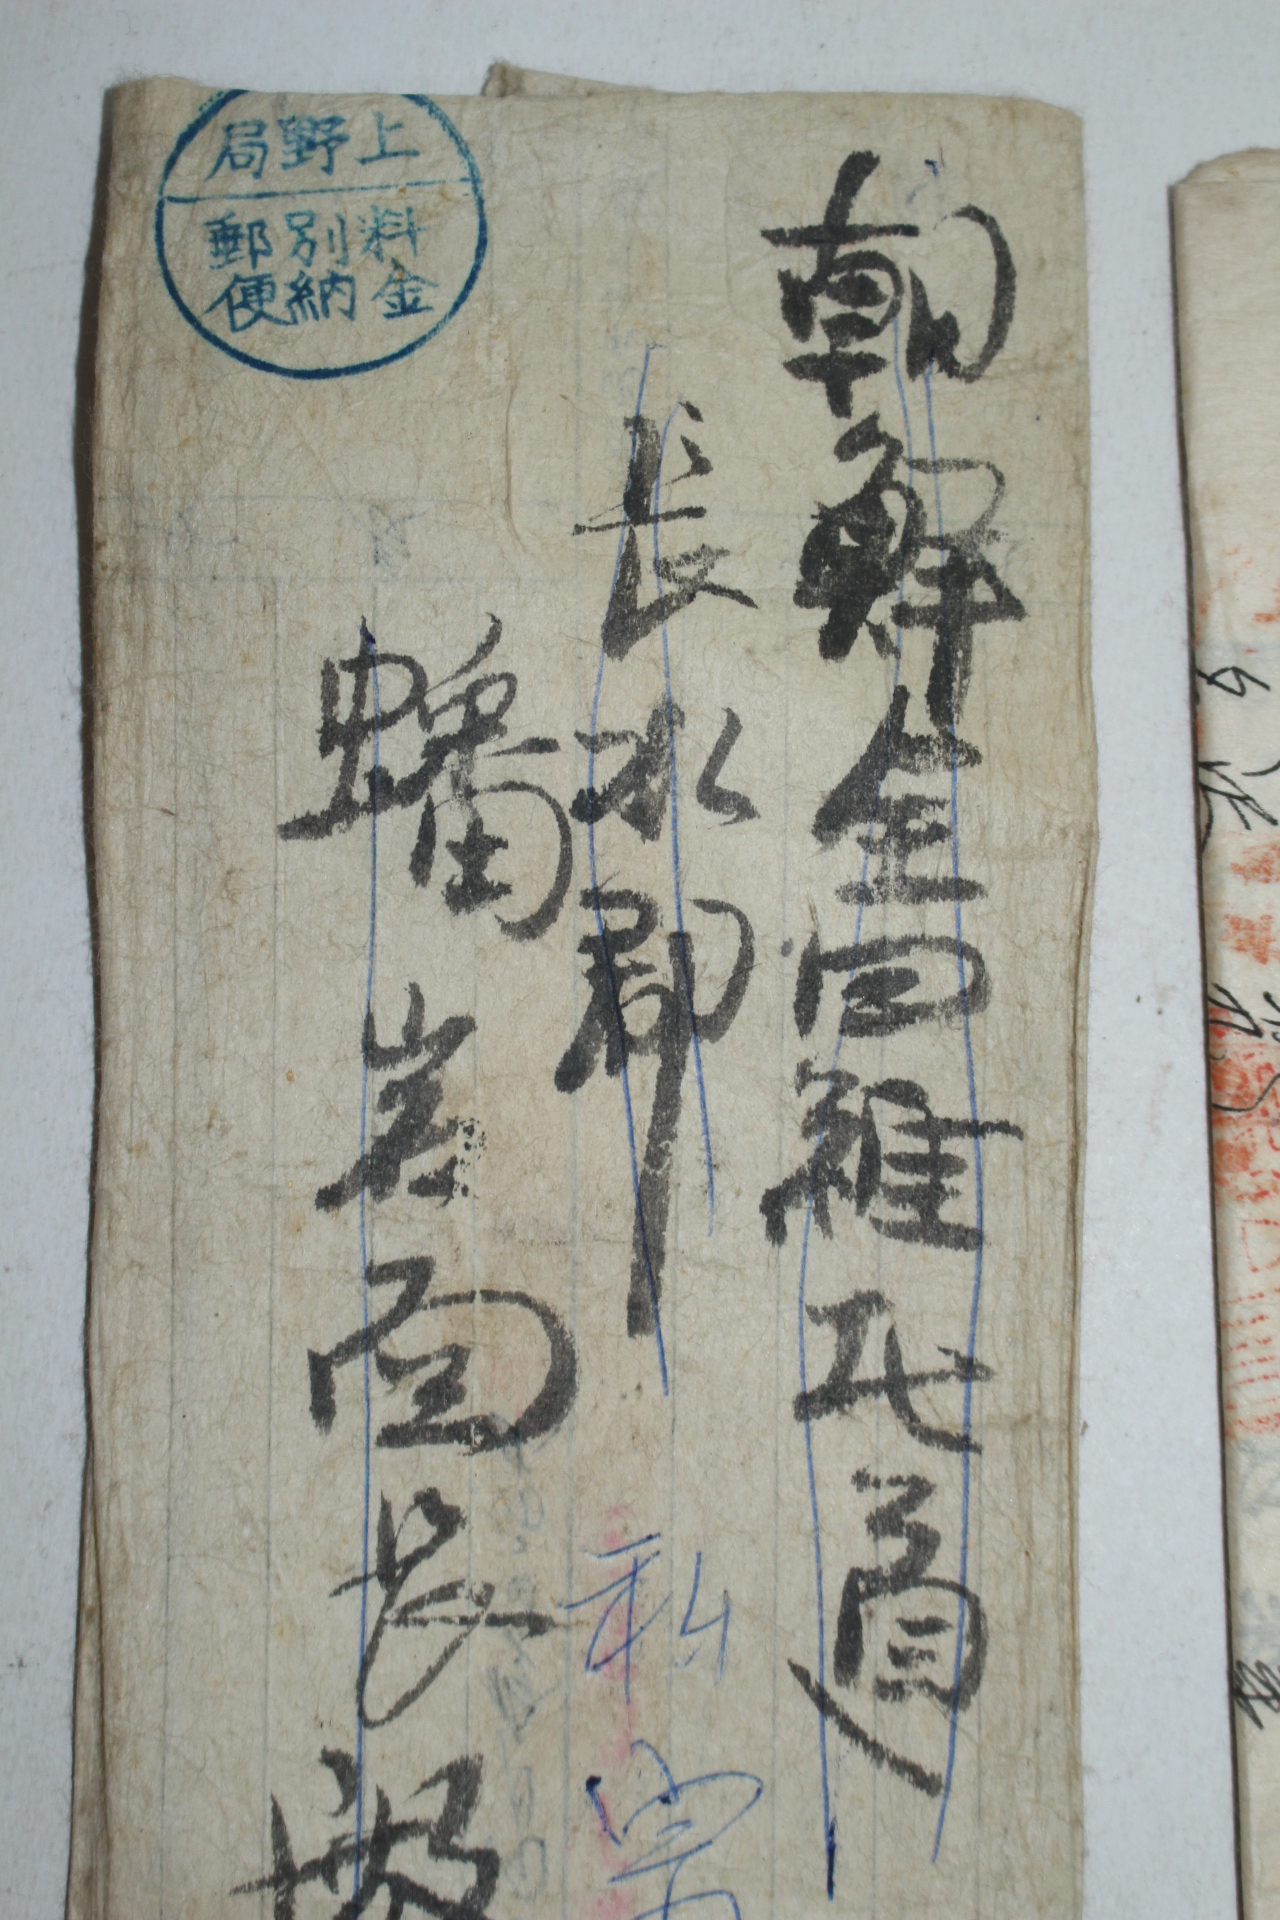 朝鮮全羅北道
長水郡
蟠岩面長殿
上野局
料金
別納
郵便
私